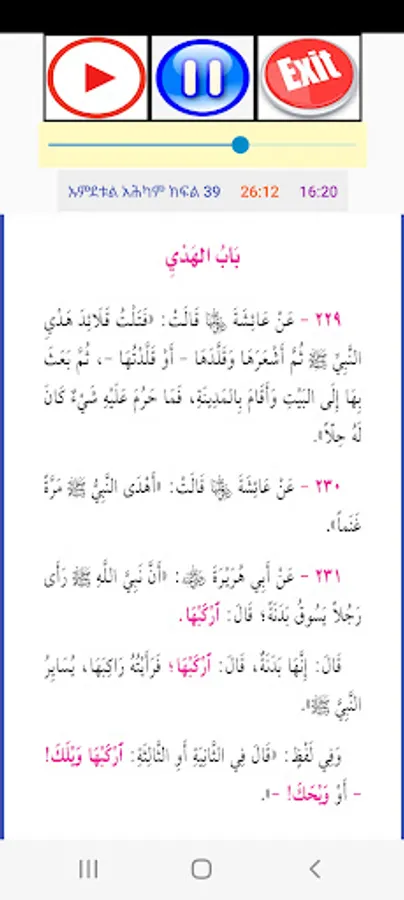 Exit
ኡምደቱል አሕካም ክፍል 39 26:12 16:20
بَابُ الهَدْيِ
٢٢٩ - عَنْ عَائِشَةَ رضي الله عنها قَالَتْ: «فَتَلْتُ قَلَائِدَ هَدْيِ
النَّبِيِّ ﷺ ثُمَّ أَشْعَرَهَا وَقَلَّدَهَا - أَوْ قَلَّدْتُهَا -، ثُمَّ بَعَثَ
بِهَا إِلَى البَيْتِ وَأَقَامَ بِالمَدِينَةِ، فَمَا حَرُمَ عَلَيْهِ شَيْءٌ كَانَ
لَهُ حِلّاً».
٢٣٠ - عَنْ عَائِشَةَ رضي الله عنها قَالَتْ: «أَهْدَى النَّبِيُّ ﷺ مَرَّةً
غَنَماً».
٢٣١ - عَنْ أَبِي هُرَيْرَةَ رضي الله عنه: «أَنَّ نَبِيَّ اللَّهِ ﷺ رَأَى
رَجُلاً يَسُوقُ بَدَنَةً؛ قَالَ: ٱرْكَبْهَا.
قَالَ: إِنَّهَا بَدَنَةٌ، قَالَ: ٱرْكَبْهَا؛ فَرَأَيْتُهُ رَاكِبَهَا، يُسَايِرُ
النَّبِيَّ ﷺ».
وَفِي لَفْظٍ: «قَالَ فِي الثَّانِيَةِ أَوِ الثَّالِثَةِ: ٱرْكَبْهَا وَيْلَكَ!
- أَوْ وَيْحَكَ! -».